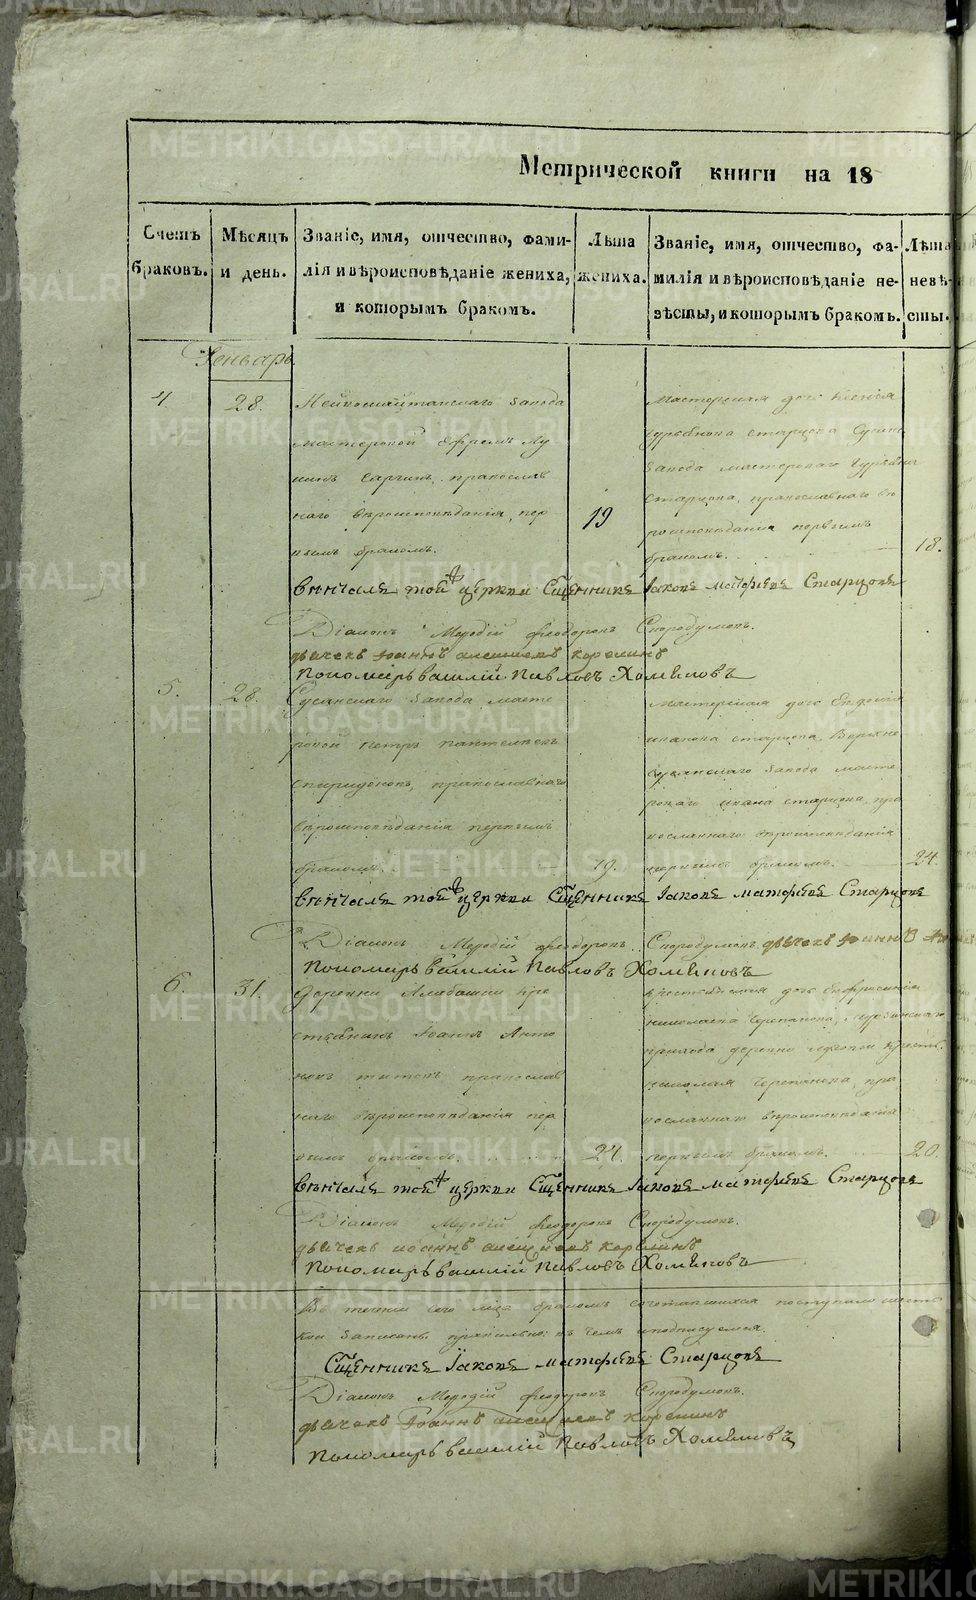 Метрической книги на 18
Счетъ браковъ.
Мѣсяцъ и день.
Званіе, имя, отчество, фами-
лія и вѣроисповѣданіе жениха,
и которымъ бракомъ.
Лѣта жениха.
Званіе, имя, отчество, фа-
милія и вѣроисповѣданіе не-
вѣсты, и которымъ бракомъ.
Лѣта невѣ-
сты.
Генварь
4.
28.
Нейвошайтанскаго завода
мастерской Ефремъ Лу
кинъ Саргинъ, православ
наго вѣроисповѣданія, пер
вымъ бракомъ.
19
Мастерская дочь Ксенія
Гурьянова Старцова
завода мастероваго Гурьяна
Старцова, православнаго вѣ
роисповѣданія первымъ
бракомъ.
18.
Вѣнчалъ той церкви Сщенникъ Іаковъ Матфіевъ Старцовъ
Діаконъ Меѳодій Ѳеодоровъ Словодумовъ.
дьячекъ Іоаннъ Алексіевъ Корелинъ
Пономарь Василій Павловъ Хомяковъ
5.
28.
Сусанскаго завода масте
ровой Петръ Пантелѣевъ
Спиридоновъ, православнаго
вѣроисповѣданія первымъ
бракомъ.
19.
Мастерская дочь Евдокія
Иванова Старцова, Верхне
сусанскаго завода масте
роваго Ивана Старцова, пра
вославнаго вѣроисповѣданія
первымъ бракомъ.
24.
Вѣнчалъ той церкви Сщенникъ Іаковъ Матфіевъ Старцовъ
Діаконъ Меѳодій Ѳеодоровъ Словодумовъ. дьячекъ Іоаннъ
Пономарь Василій Павловъ Хомяковъ
6.
31.
Деревни Алабашки кре
стьянинъ Іоаннъ Анто
новъ Титовъ, православ
наго вѣроисповѣданія пер
вымъ бракомъ.
24.
Крестьянская дочь Евфросинія
Николаева Черепанова, Мурзинскаго
прихода деревни крестьян.
Николая Черепанова, пра
вославнаго вѣроисповѣданія
первымъ бракомъ.
20.
Вѣнчалъ той церкви Сщенникъ Іаковъ Матфіевъ Старцовъ
Діаконъ Меѳодій Ѳеодоровъ Словодумовъ.
дьячекъ Іоаннъ Алексіевъ Корелинъ
Пономарь Василій Павловъ Хомяковъ
Въ теченіи сего мѣсяца бракомъ сочетавшихся поступало
записано правильно: въ чемъ и подписуемся.
Сщенникъ Іаковъ Матфіевъ Старцовъ
Діаконъ Меѳодій Ѳеодоровъ Словодумовъ.
дьячекъ Іоаннъ Алексіевъ Корелинъ
Пономарь Василій Павловъ Хомяковъ
METRIKI.GASO-URAL.RU